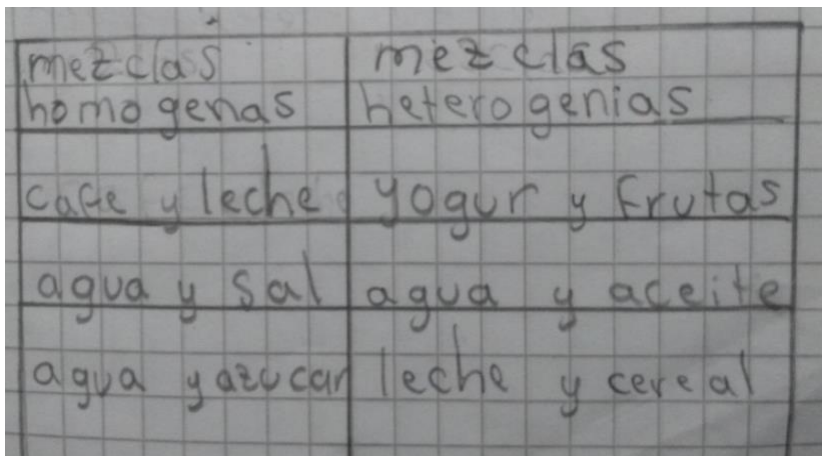 mezclas mezclas
homogenas heterogenias
cafe y leche yogur y frutas
agua y sal agua y aceite
agua y azucar leche y cereal